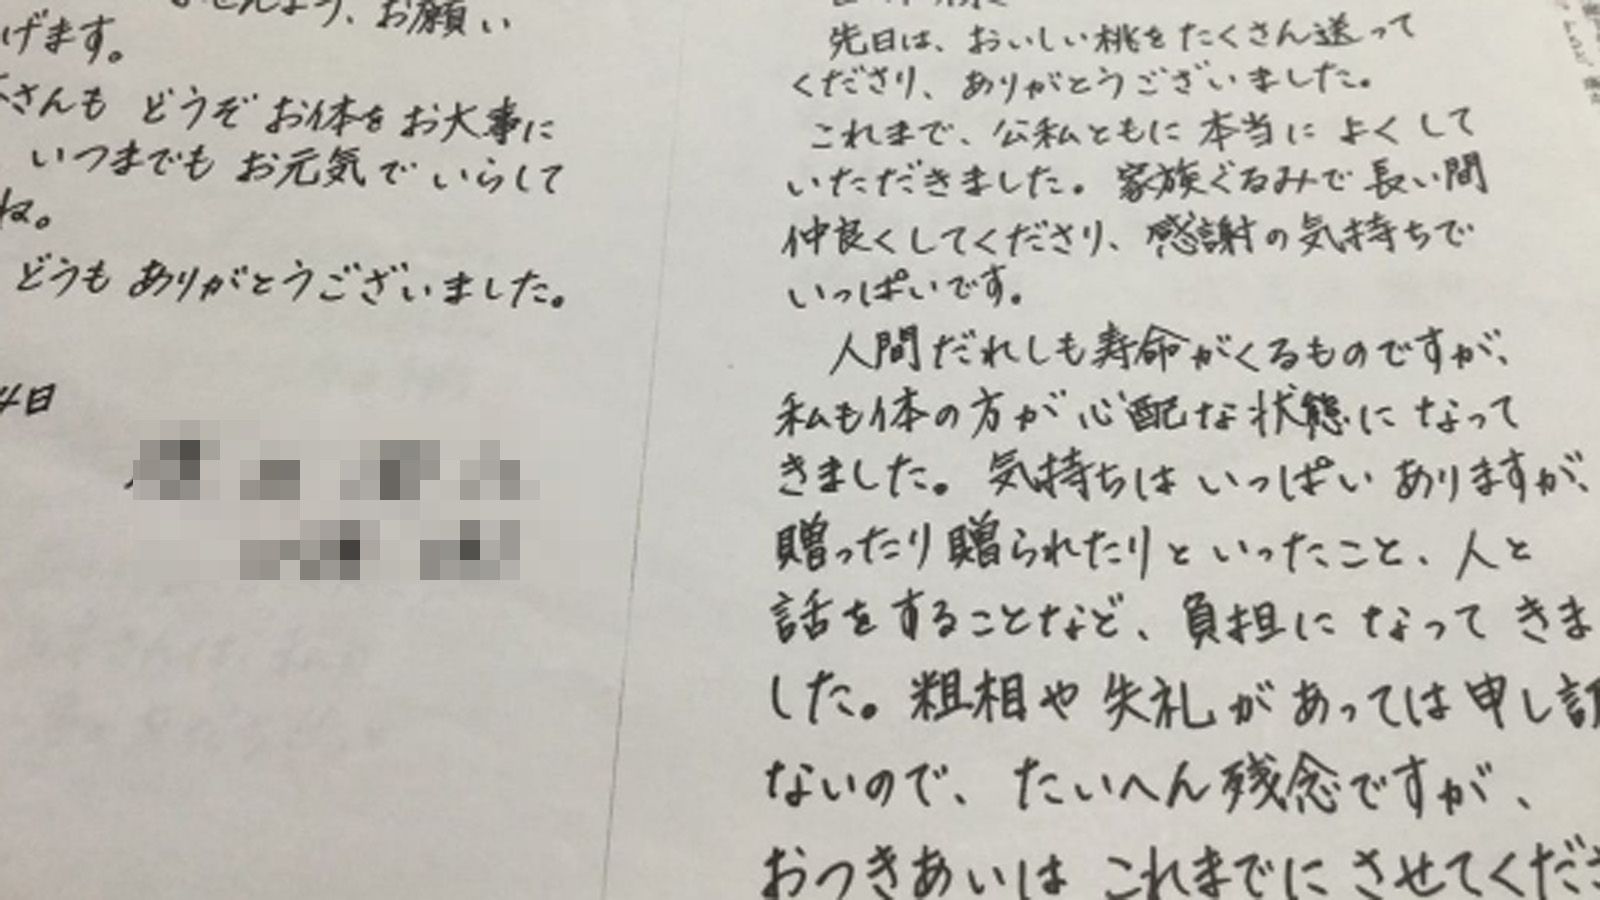 先日は、おいしい桃をたくさん送って
くださり、ありがとうございました。
これまで、公私ともに本当によくして
いただきました。家族ぐるみで長い間
仲良くしてくださり、感謝の気持ちで
いっぱいです。
人間だれしも寿命がくるものですが、
私も体の方が心配な状態になって
きました。気持ちはいっぱいありますが、
贈ったり贈られたりといったこと、人と
話をすることなど、負担になってきま
した。粗相や失礼があっては申し訳
ないので、たいへん残念ですが、
おつきあいはこれまでにさせてくださ
せんよう、お願い
げます。
さんもどうぞお体をお大事に
いつまでもお元気でいらして
ね。
どうもありがとうございました。
4日